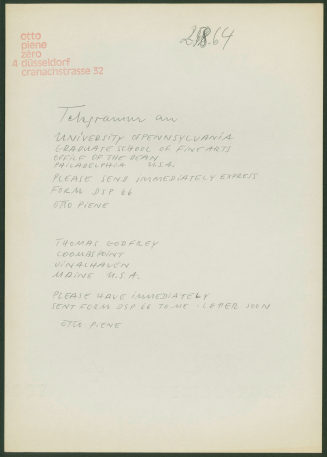 otto
piene
zero
4 düsseldorf
cranachstrasse 32
64
Telegramm an
UNIVERSITY OF PENNSYLVANIA
GRADUATE SCHOOL OF FINE ARTS
OFFICE OF THE DEAN
PHILADELPHIA U.S.A.
PLEASE SEND IMMEDIATELY EXPRESS
FORM DSP 66
OTTO PIENE
THOMAS GODFREY
COOMBSPOINT
VINALHAVEN
MAINE U.S.A.
PLEASE HAVE IMMEDIATELY
SENT FORM DSP 66 TO ME - LETTER SOON
OTTO PIENE